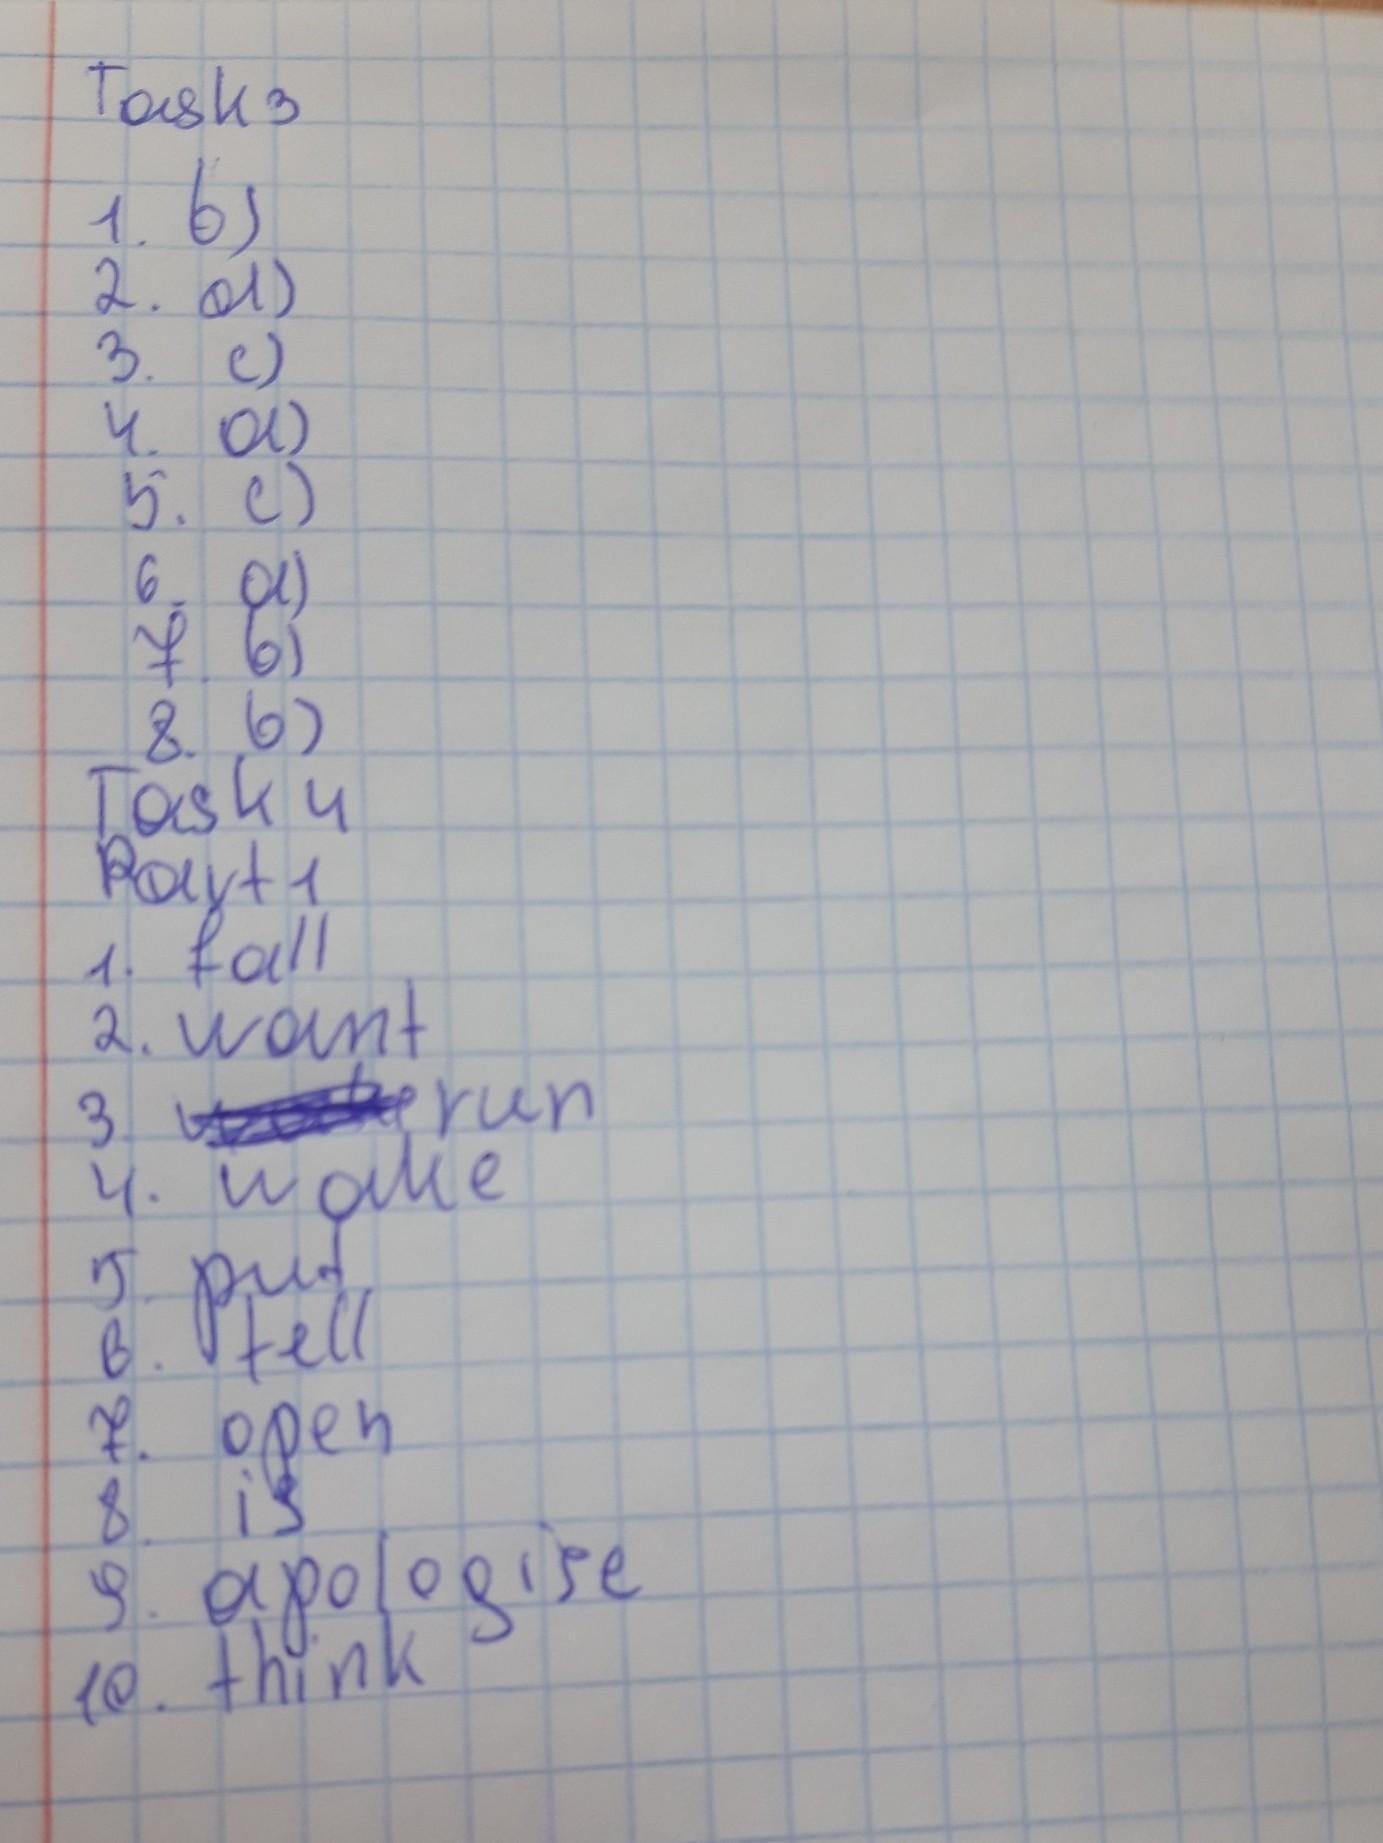 Task 3
1. b)
2. a)
3. c)
4. a)
5. c)
6. a)
7. b)
8. b)
Task 4
Part 1
1. fall
2. want
3 run
4. wake
5. put
6. tell
7. open
8. is
9. apologise
10. think